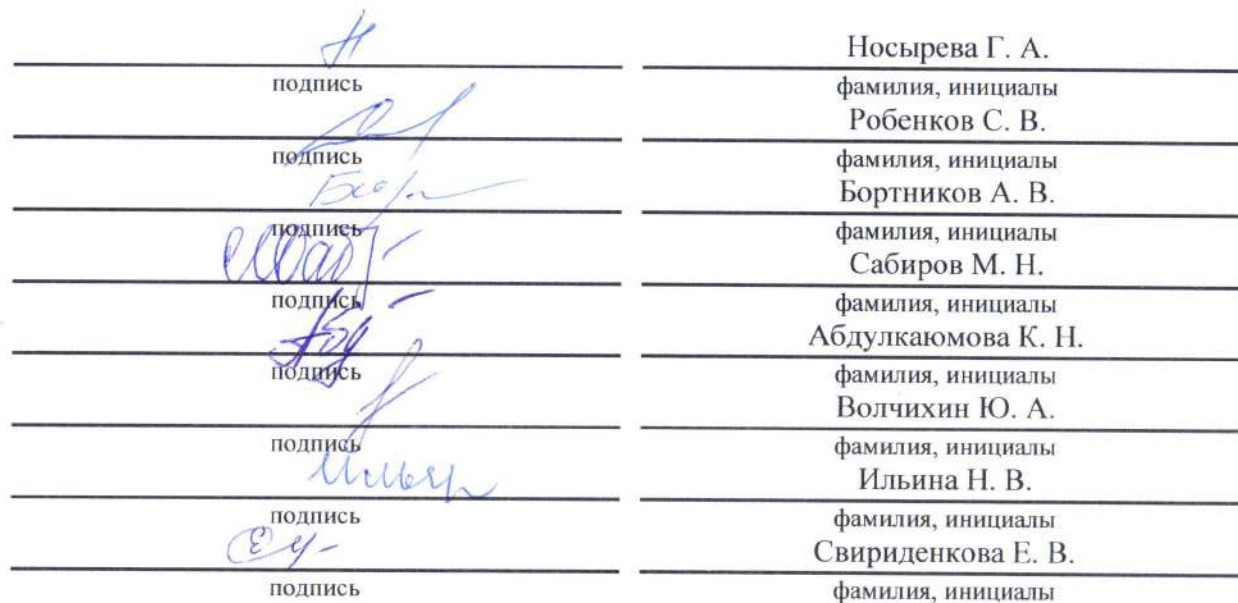 Носырева Г. А.
подпись фамилия, инициалы
Робенков С. В.
подпись фамилия, инициалы
Бортников А. В.
подпись фамилия, инициалы
Сабиров М. Н.
подпись фамилия, инициалы
Абдулкаюмова К. Н.
подпись фамилия, инициалы
Волчихин Ю. А.
подпись фамилия, инициалы
Ильина Н. В.
подпись фамилия, инициалы
Свириденкова Е. В.
подпись фамилия, инициалы